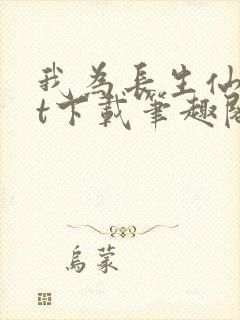 我为长生仙
t下载笔趣阁
乌蒙